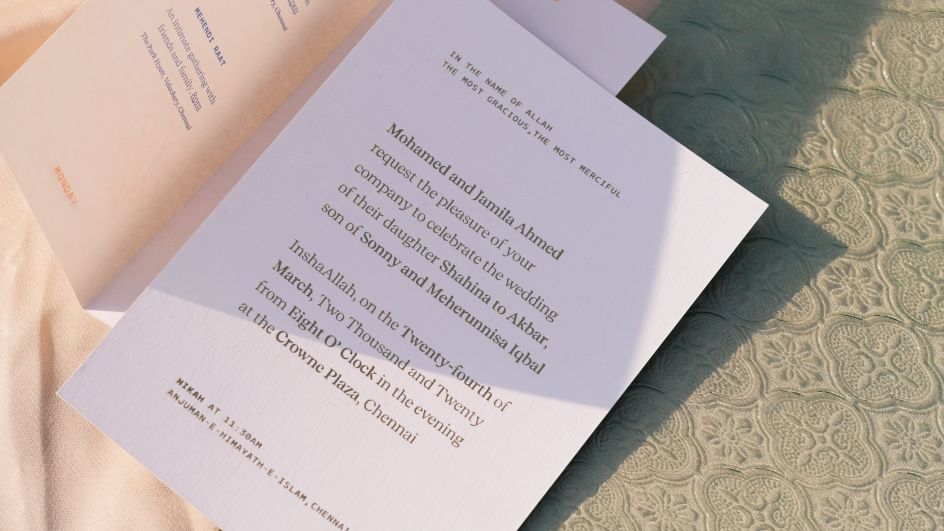 IN THE NAME OF ALLAH
THE MOST GRACIOUS, THE MOST MERCIFUL
Mohamed and Jamila Ahmed
request the pleasure of your
company to celebrate the wedding
of their daughter Shahina to Akbar,
son of Sonny and Meherunnisa Iqbal
InshaAllah, on the Twenty-fourth of
March, Two Thousand and Twenty
from Eight O' Clock in the evening
at the Crowne Plaza, Chennai
NIKAH AT 11:30AM
ANJUMAN-E-HIMAYATH-E-ISLAM, CHENNAI
MEHENDI RAAT
An intimate gathering with
friends and family, 8pm
The Park Hyatt, Velachery, Chennai
MONDAY
Chennai